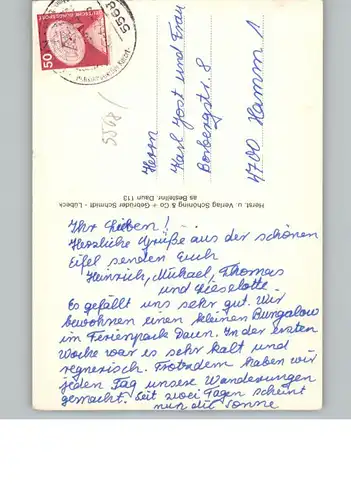 50
DEUTSCHE BUNDESPOST
5568
5568/
Herrn
Karl Jost und Frau
Borbergstr. 8
4700 Hamm 1
Herst. u. Verlag Schöning & Co + Gebrüder Schmidt - Lübeck
as Bestellnr. Daun 113
Ihr Lieben!
Herzliche Grüße aus der schönen
Eifel senden Euch
Heinrich, Michael, Thomas
und Lieselotte.
Es gefällt uns sehr gut. Wir
bewohnen einen kleinen Bungalow
im Ferienpark Daun. In der ersten
Woche war es sehr kalt und
regnerisch. Trotzdem haben wir
jeden Tag unsere Wanderungen
gemacht. Seit zwei Tagen scheint
nun die Sonne